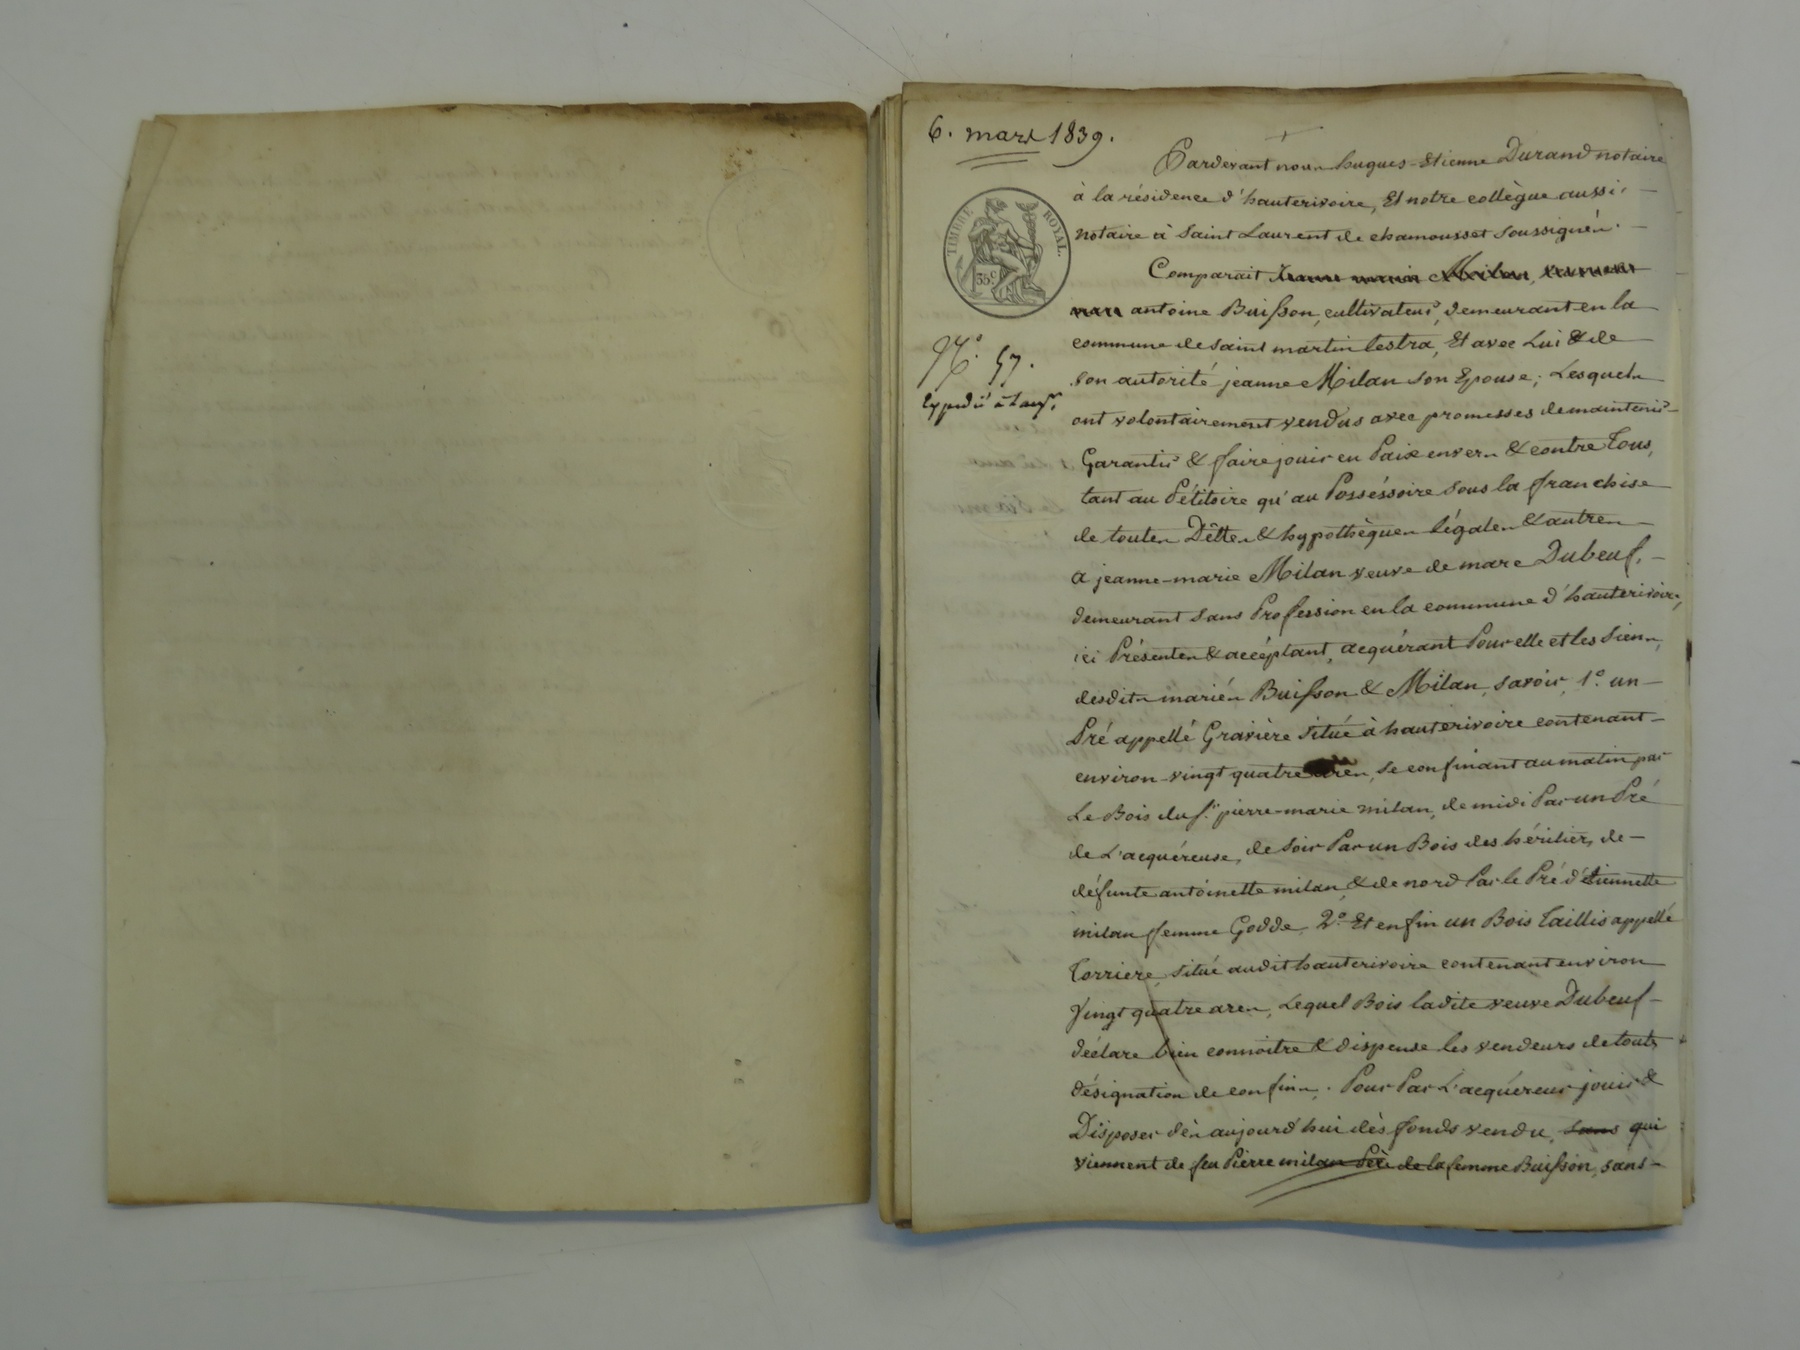 6. mars 1839.
TIMBRE ROYAL.
35c
No. 57.
Pardevant nous hugues-Etienne Durand notaire
à la résidence d'hauterivoire, Et notre collègue aussi
notaire à Saint Laurent de chamousset soussignés.
Comparait Jeanne marie Milan,
antoine Buisson, cultivateur, demeurant en la
commune de saint martin lestra, Et avec Lui & de
son autorité jeanne Milan son Epouse; Lesquels
ont volontairement vendus avec promesses de maintenir
Garantir & faire jouir en Paix envers & contre Tous,
tant au Pétitoire qu'au Posséssoire sous la franchise
de toutes Dêttes & hypothèques légales & autres
a jeanne-marie Milan veuve de marc Dubeuf,
demeurant sans Profession en la commune d'hauterivoire,
ici Présentes & accéptant, acquérant Pour elle et les Siens,
desdits mariés Buisson & Milan, savoir, 1º. un
Pré appellé Gravière situé à hauterivoire contenant
environ vingt quatre ares, se confinant au matin par
Le Bois du sr. pierre-marie milan, de midi Par un Pré
de L'acquéreuse, de soir Par un Bois des héritiers de
défunte antoinette milan, & de nord Par le Pré d'étiennette
milan femme Godde, 2º. Et enfin un Bois Taillis appellé
Torriere, situé audit hauterivoire contenant environ
Vingt quatre ares, Lequel Bois ladite veuve Dubeuf
déclare bien connoitre & dispense les vendeurs de toute
désignation de confins. Pour Par L'acquéreur jouir &
Disposer dès aujourd'hui dès fonds vendu, sans qui
viennent de feu Pierre milan Père de la femme Buisson, sans